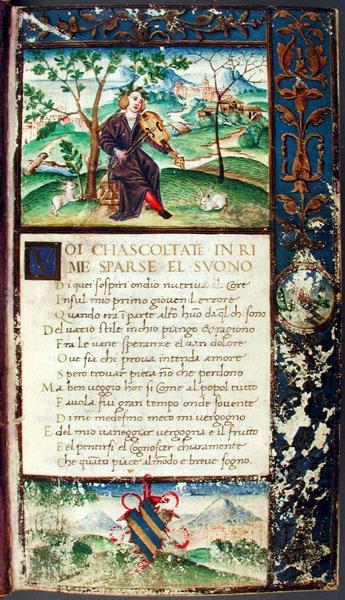 VOI CHASCOLTATE IN RI
ME SPARSE EL SVONO
Di quei sospiri ondio nutriva il Core
Insul mio primo giovenil errore
Quando era i parte altro huō da ql ch i sono
Del vario stile inchio piango & ragiono
Fra le vane speranze el van dolore
Ove sia chi prova intenda amore
Spero trovar pieta nō che perdono
Ma ben veggio hor si Come al popol tutto
Favola fui gran tempo onde sovente
Di me medesmo meco mi vergogno
E del mio vaneggiar vergogna e il frutto
E el pentirsi el Cognoscer chiaramente
Che quāto piace al mōdo e breve sogno.